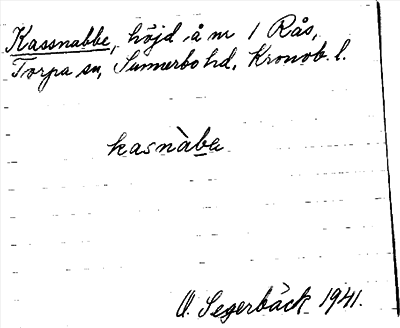 Kassnabbe, höjd å nr 1 Rås,
Torpa sn, Sunnerbo hd, Kronob. l.
kasnàbe
O. Segerbäck 1941.